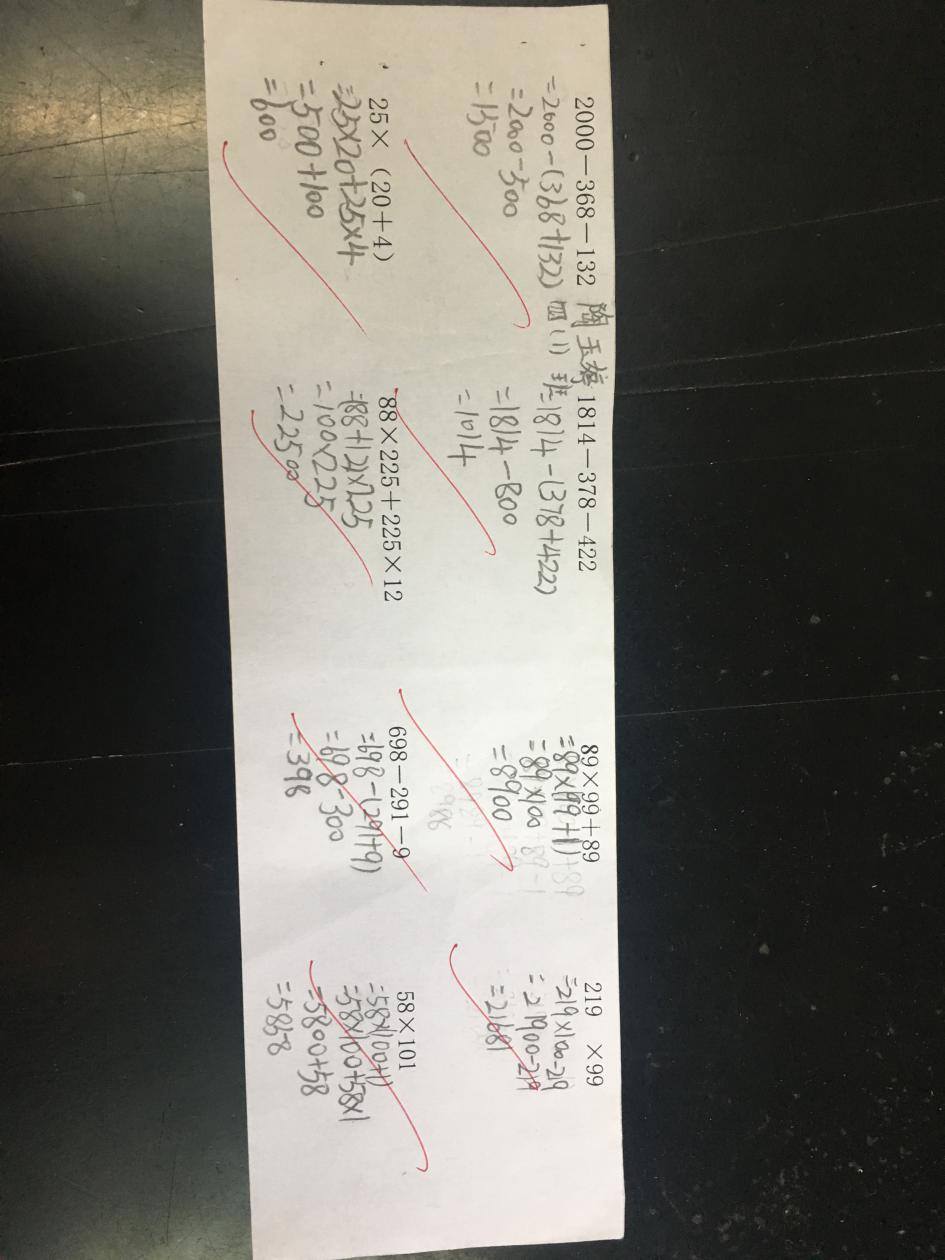 2000－368－132
=2000-(368+132)
=2000-500
=1500
陶玉婷
四(1)班
1814－378－422
=1814-(378+422)
=1814-800
=1014
89×99+89
=89×(99+1)
=89×100
=8900
219 ×99
=219×100-219
=21900-219
=21681
25×（20+4）
=25×20+25×4
=500+100
=600
88×225+225×12
=(88+12)×225
=100×225
=22500
698－291－9
=698-(291+9)
=698-300
=398
58×101
=58×(100+1)
=58×100+58×1
=5800+58
=5858